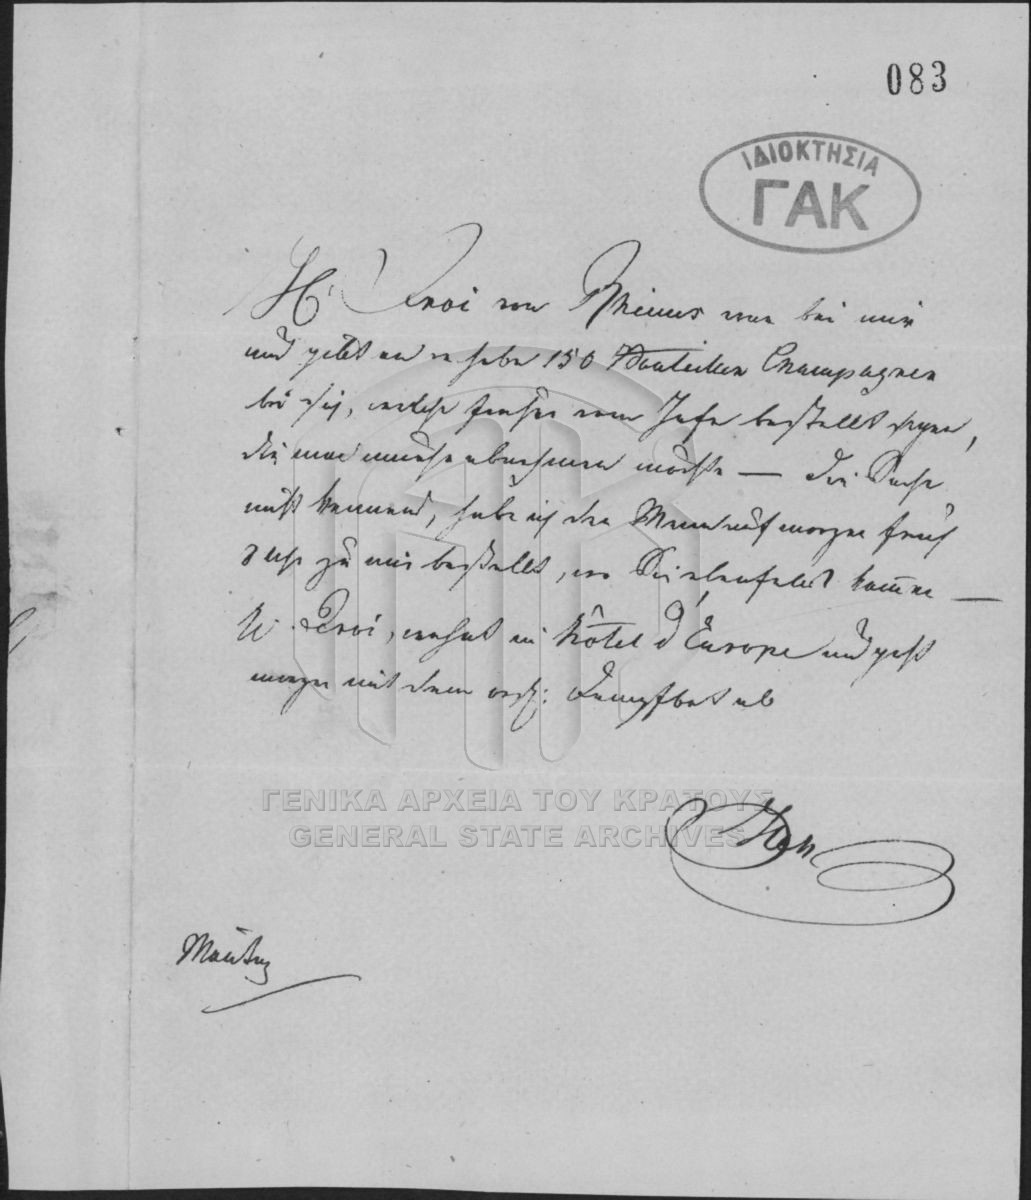 083
ΙΔΙΟΚΤΗΣΙΑ
ΓΑΚ
H. Croi von Rheims war bei mir
und gibt an er habe 150 Bouteillen Champagner
bei sich, welche früher vom Hofe bestellt seyen,
die man nun abnehmen möchte — Die Sache
nicht kennend, habe ich den Mann auf morgen früh
Uhr zu mir bestellt, wo Sie ebenfalls kommen —
H. Croi, wohnt in Hôtel d'Europe und geht
morgen mit dem Dampfboot ab
ΓΕΝΙΚΑ ΑΡΧΕΙΑ ΤΟΥ ΚΡΑΤΟΥΣ
GENERAL STATE ARCHIVES
Montag